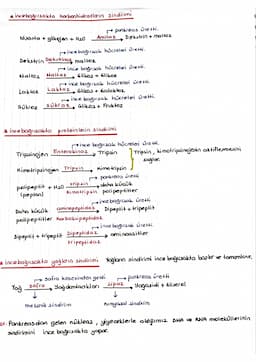 ★ ince bağırsakta karbonhidratların sindirimi
→ pankreas üretti.
Nişasta + glikojen + H₂O Amilaz → Dekstrin + maltoz
→ ince bağırsak hücreleri üretti.
Dekstrin Dekstrinaz → maltoz
→ ince bağırsak hücreleri üretti.
Maltoz Maltaz → Glikoz + Glikoz
→ ince bağırsak hücreleri üretti.
Laktoz Laktaz → Glikoz + Galaktoz
→ ince bağırsak hücreleri üretti.
Sükroz Sükraz → Glikoz + Fruktoz
★ ince bağırsakta proteinlerin sindirimi
→ ince bağırsak üretti
Tripsinojen Enterokinaz → Tripsin
Tripsin, kimotripsinojeni aktifleşmesini sağlar.
Kimotripsinojen Tripsin → Kimotripsin
→ pankreas üretti
polipeptit + H₂O tripsin → daha küçük
(pepton) kimotripsin polipeptitler
→ ince bağırsak üretti
Daha küçük aminopeptidaz → Dipeptit + tripeptit
polipeptitler Karboksipeptidaz
→ ince bağırsak üretti.
Dipeptit + tripeptit Dipeptidaz → aminoasitler
Tripeptidaz
★ ince bağırsakta yağların sindirimi Yağların sindirimi ince bağırsakta başlar ve tamamlanır.
→ safra kesesinden geldi → pankreas üretti.
Yağ safra → Yağ damlacıkları lipaz → Yağ asidi + Gliserol
mekanik sindirim kimyasal sindirim
Pankreasdan gelen nükleaz, yiyeceklerle aldığımız DNA ve RNA moleküllerinin
sindirimini ince bağırsakta yapar.